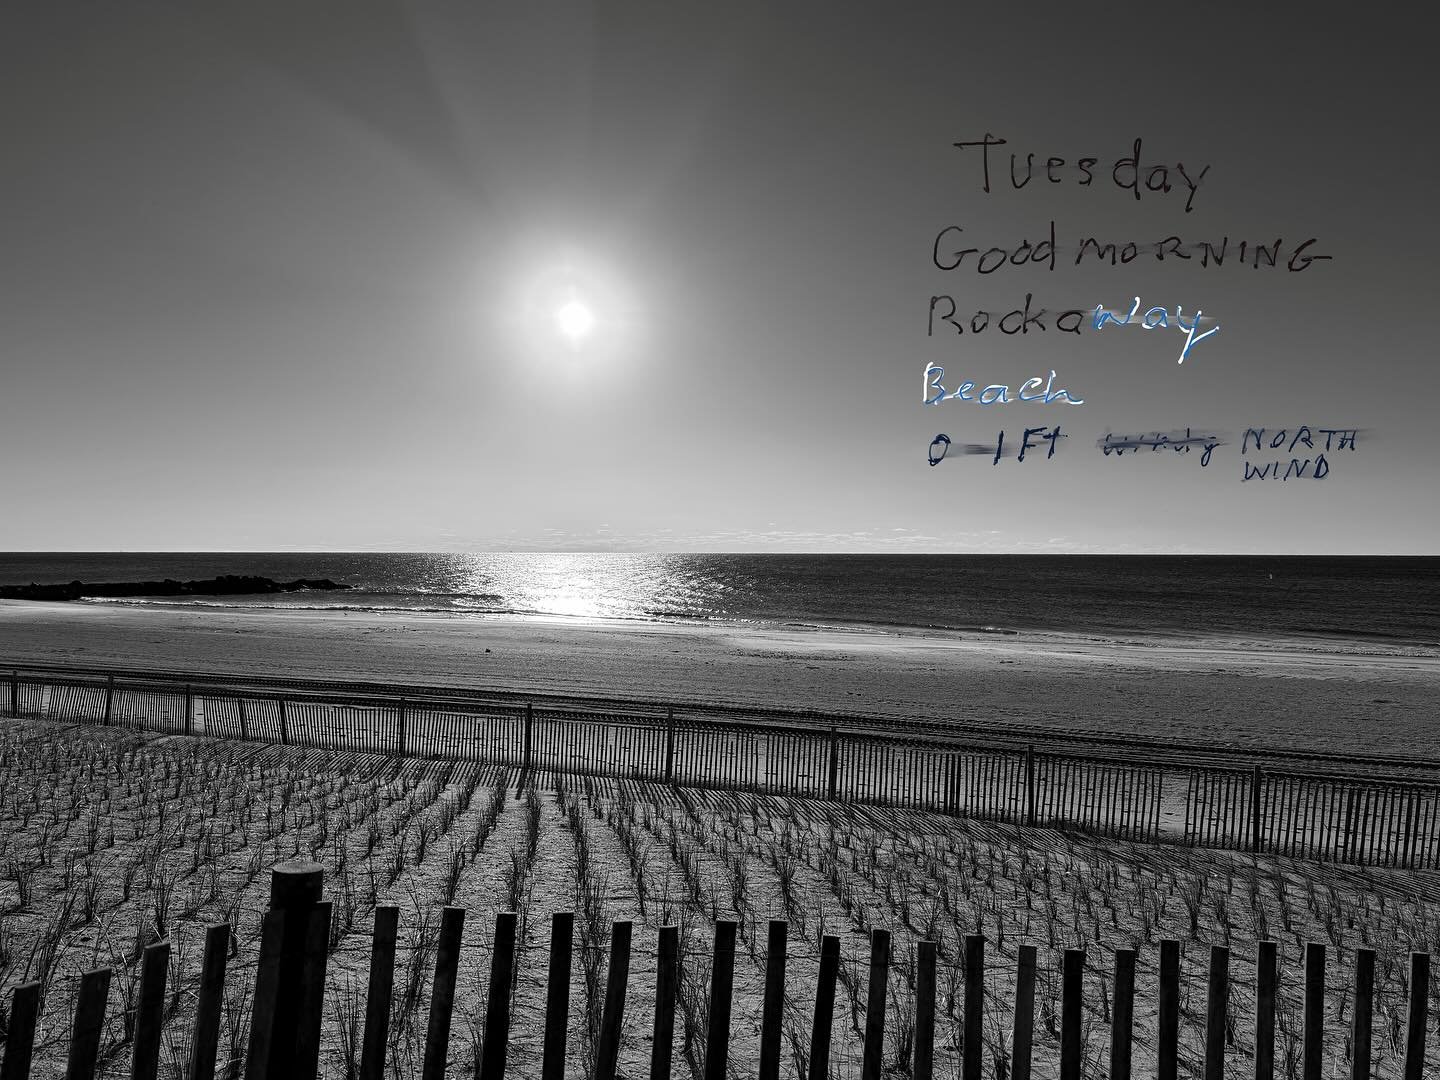 Tuesday
Good MORNING
Rockaway
Beach
0-1 FT windy NORTH
WIND